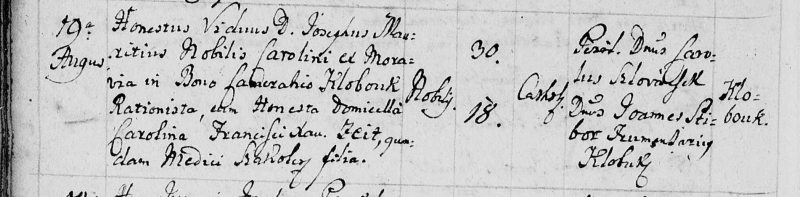 19ª Augus.
Honestus Viduus D. Josephus Mau-
ritius Nobilis Carolini ex Mora-
via in Bono Camerali Klobouk
Rationista, cum Honesta Domicella
Carolina Francisci Xav. Zeit, quon-
dam Medici filia.
Nobilis.
30.
18.
Cathol.
Perill. Dnus Caro-
lus
Dnus Joannes Sti-
bor Frumentarius
Klobuk
Klo-
bouk.